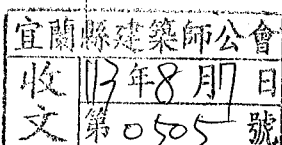 宜蘭縣建築師公會
收文
113年8月17日
第0505號